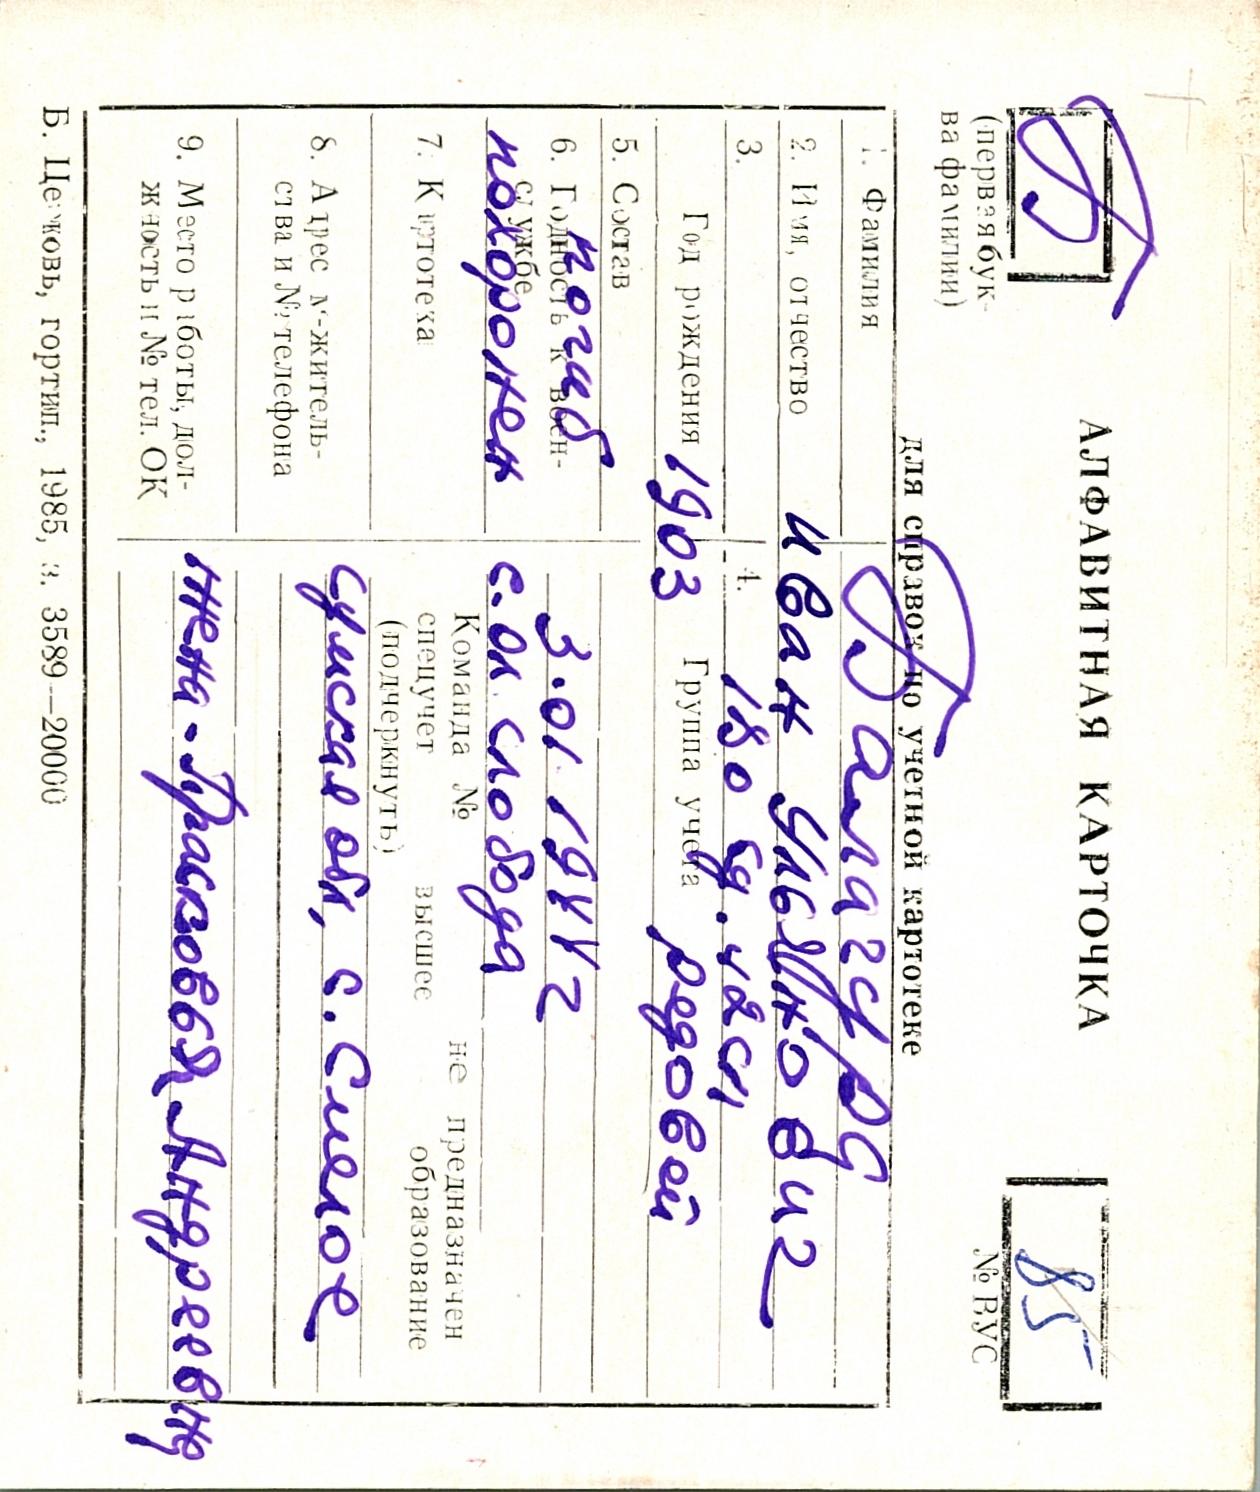 Б
(первая бук-
ва фамилии)
АЛФАВИТНАЯ КАРТОЧКА
для справок по учетной картотеке
85
№ ВУС
1. Фамилия Балагура
2. Имя, отчество Иван Ульянович
3. 4. 180
Год рождения 1903 Группа учета рядовой
5. Состав
погиб 3.01.1942
6. Годность к воен-
службе
похоронен с. слобода
7. Картотека
Команда № не предназначен
спецучет высшее образование
(подчеркнуть)
8. Адрес м-житель-
ства и № телефона
Сумская обл, с. Смелое
9. Место работы, дол-
жность и № тел. ОК
жена - Прасковья Андреевна
Б. Церковь, гортип., 1985, з. 3589—20000